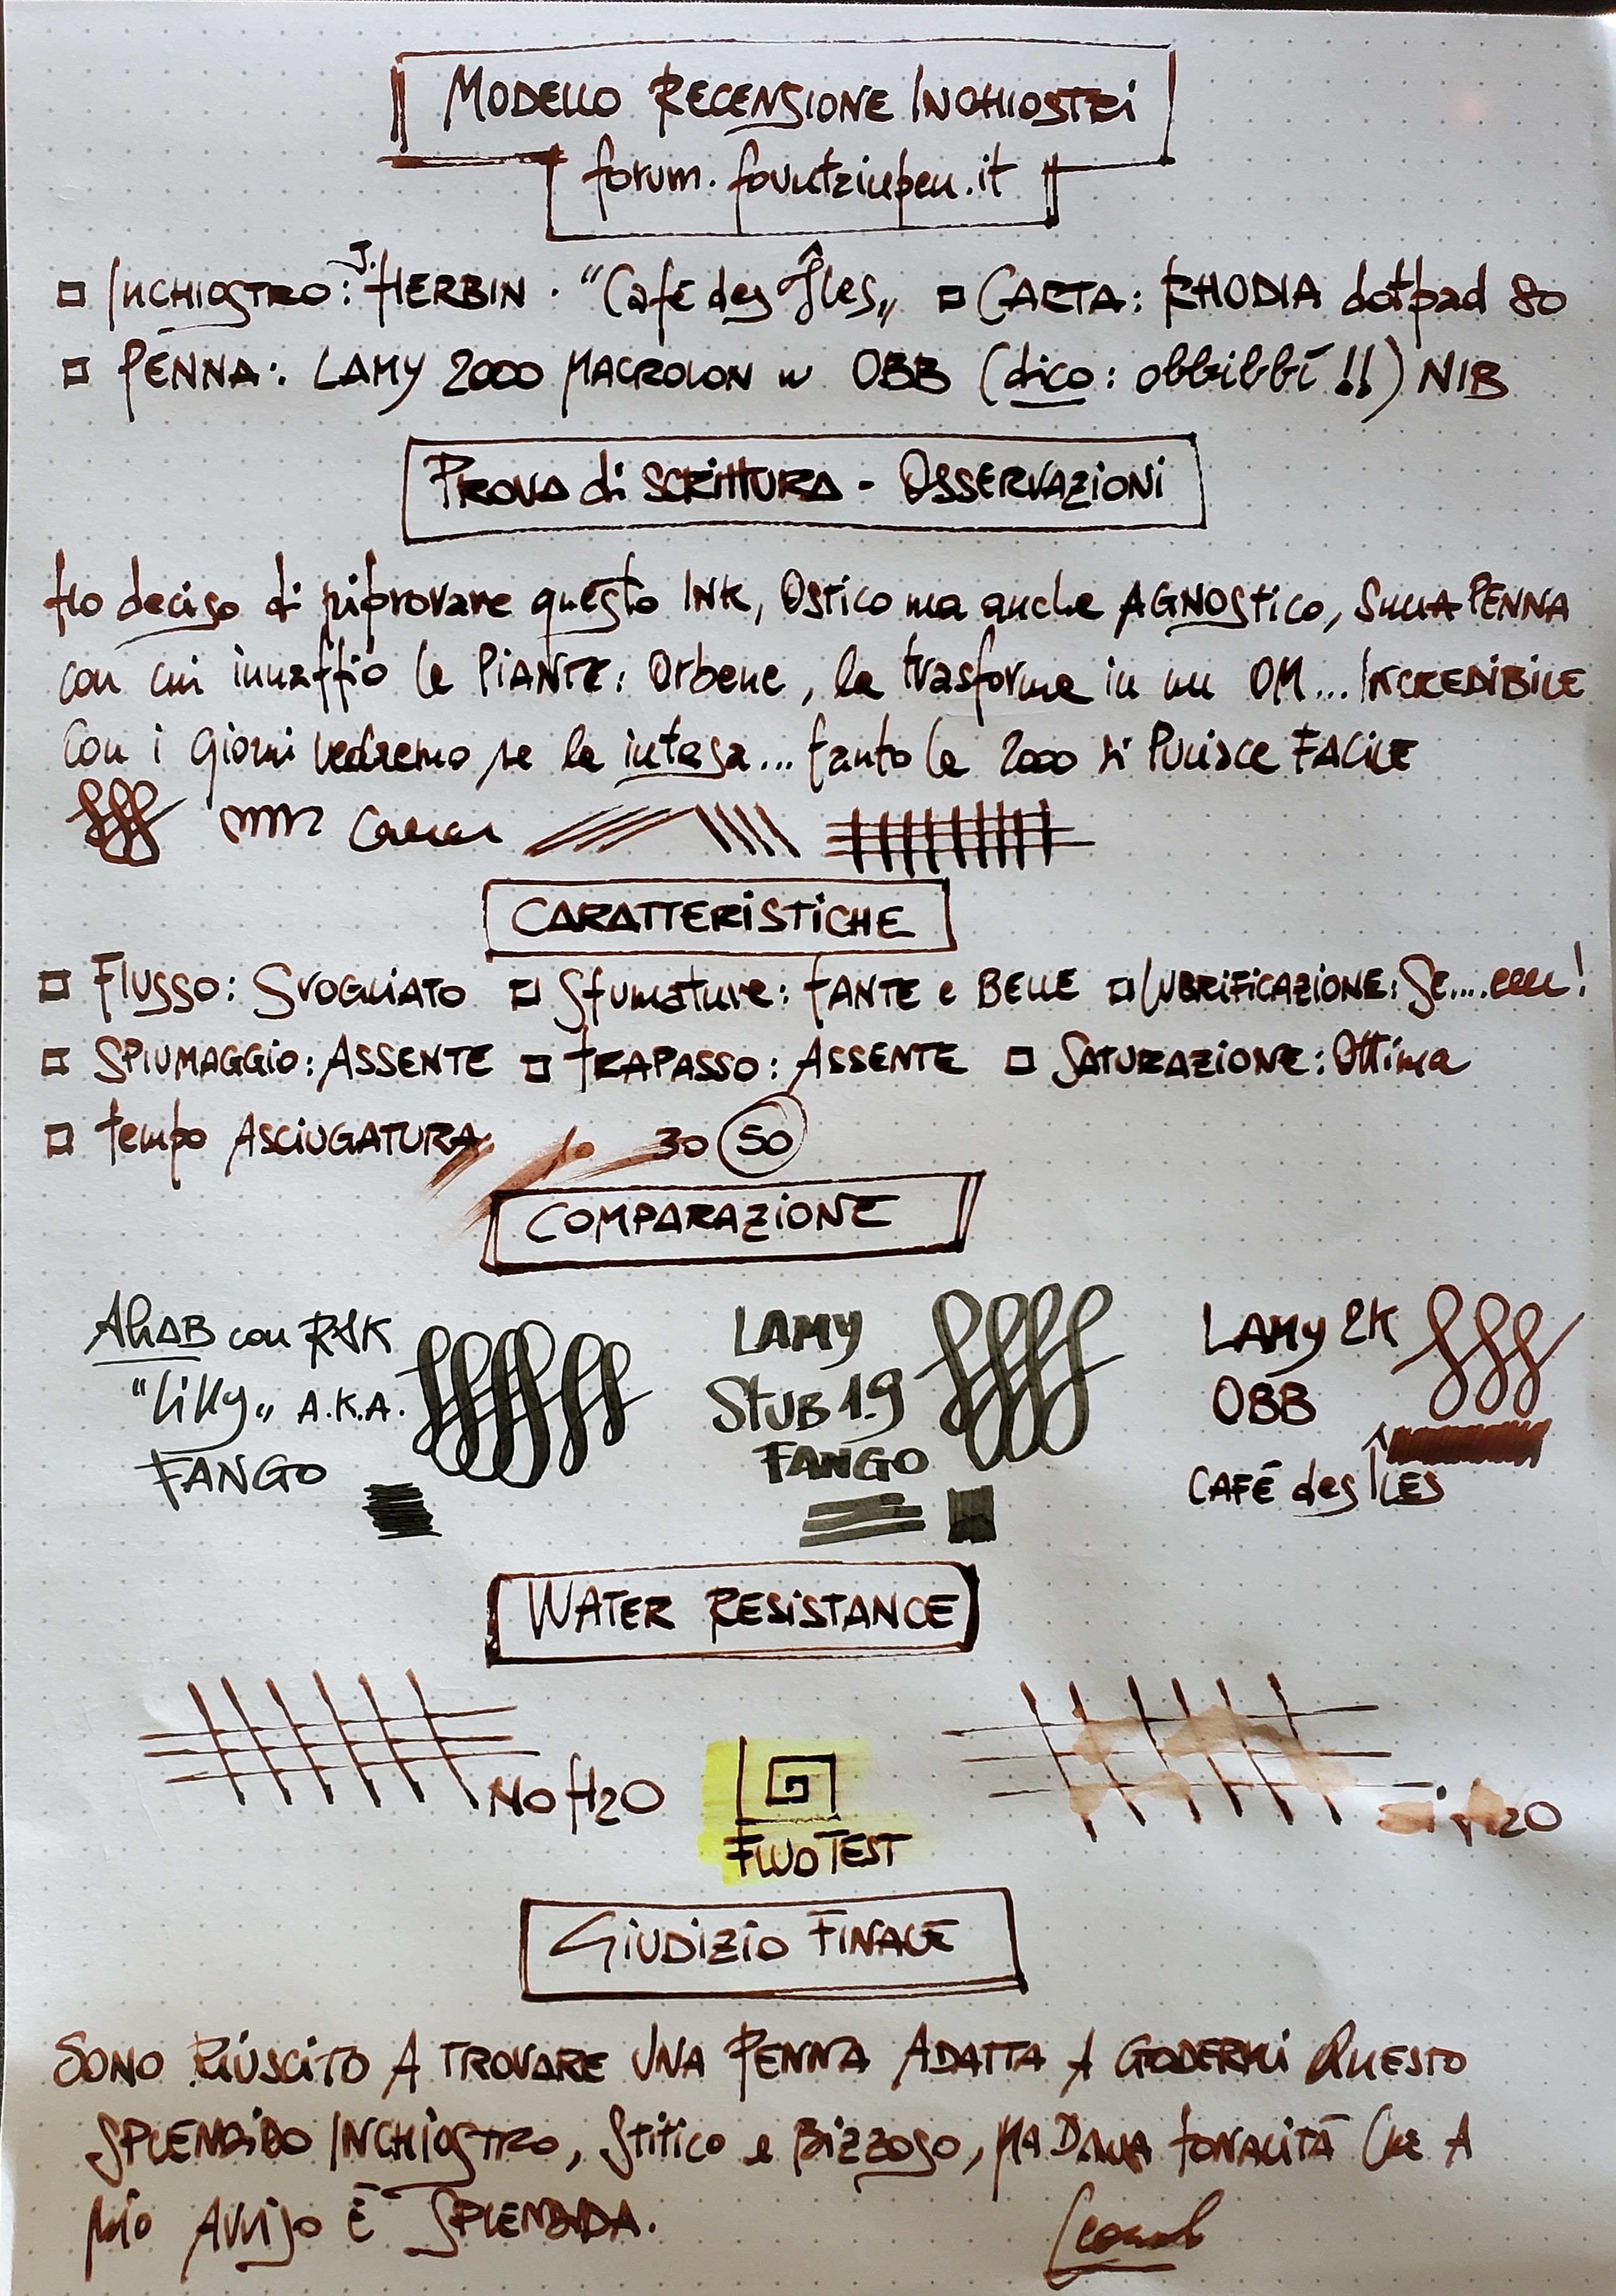 MODELLO RECENSIONE INCHIOSTRI
forum.fountainpen.it
INCHIOSTRO: J. HERBIN · "Café des Îles" CARTA: RHODIA dotpad 80
PENNA: LAMY 2000 MACROLON w OBB (dico: obbibbì!!) NIB
PROVA di SCRITTURA - OSSERVAZIONI
Ho deciso di riprovare questo INK, Ostico ma anche AGNOStico, SULLA PENNA
con cui innaffio le PiANTE: Orbene, la trasforma in un OM... INCREDIBILE
Con i Giorni vedremo se la intasa... tanto la 2000 si Pulisce FACILE
CARATTERiSTiCHE
FLUSSO: SVOGLIATO Sfumature: TANTE e BELLE LUBRIFICAZIONE: Se....
SPIUMAGGIO: ASSENTE TRAPASSO: ASSENTE SATURAZIONE: Ottima
tempo ASCIUGATURA 10 30 50
COMPARAZIONE
AHAB con R&K
"Lilly" A.K.A.
FANGO
LAMY
STUB 1.9
FANGO
LAMY 2K
OBB
CAFÉ des ILES
WATER RESiSTANCE
NO H2O
Si H2O
FLUO TEST
GIUDIZIO FINALE
SONO RIUSCITO A TROVARE UNA PENNA ADATTA A GODERMI QUESTO
SPLENDIDO INCHIOSTRO, Stitico e Bizzoso, MA DALLA TONALITÀ CHE A
MIO AVVISO È SPLENDIDA.